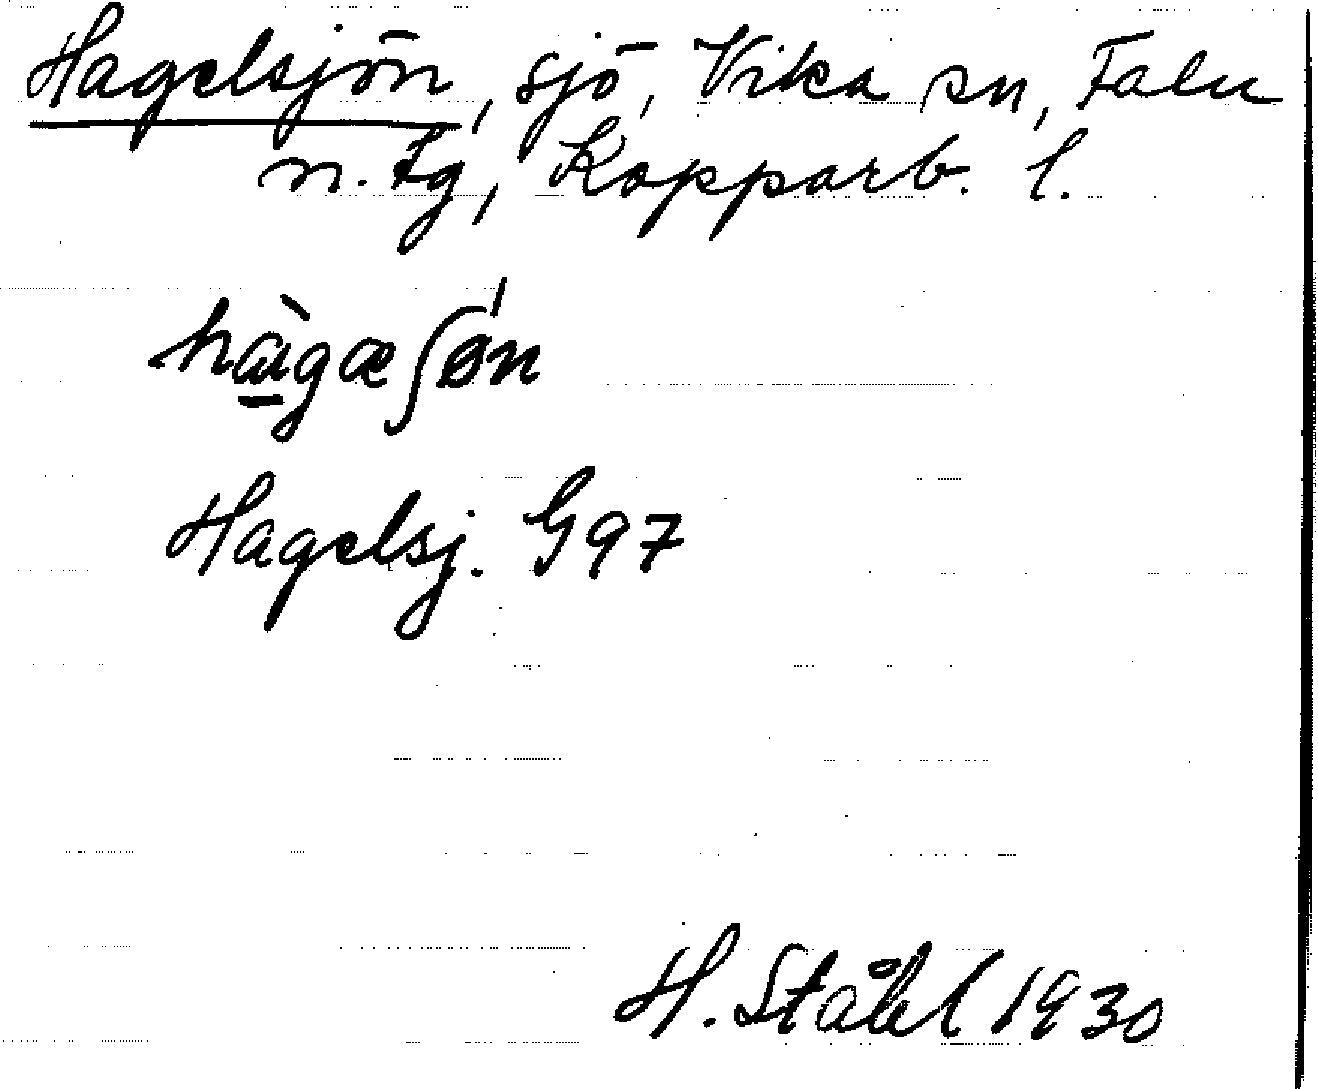 Hagelsjön, sjö, Vika sn, Falu
n. tg, Kopparb. l.
hàgæʃǿn
Hagelsj. G97
H. Ståhl 1930